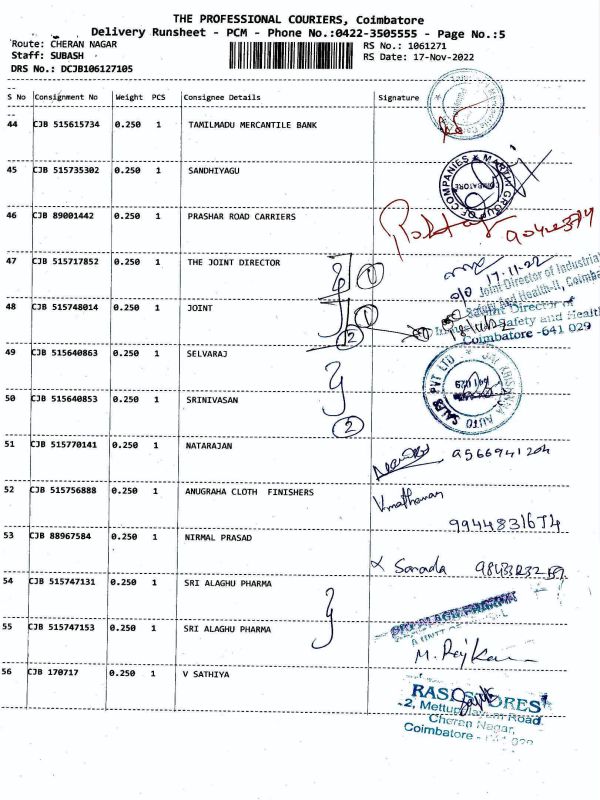 THE PROFESSIONAL COURIERS, Coimbatore
Delivery Runsheet - PCM - Phone No.:0422-3505555 - Page No.:5
Route: CHERAN NAGAR RS No.: 1061271
Staff: SUBASH RS Date: 17-Nov-2022
DRS No.: DCJB106127105
S No Consignment No Weight PCS Consignee Details Signature
44 CJB 515615734 0.250 1 TAMILMADU MERCANTILE BANK
45 CJB 515735302 0.250 1 SANDHIYAGU
MARTIN GROUP OF COMPANIES COIMBATORE
46 CJB 89001442 0.250 1 PRASHAR ROAD CARRIERS
47 CJB 515717852 0.250 1 THE JOINT DIRECTOR 1 17.11.22
Joint Director of Industrial
Safety and Health-II, Coimba
48 CJB 515748014 0.250 1 JOINT 1
Joint Director of
Safety and Health
Coimbatore -641 029
2
49 CJB 515640863 0.250 1 SELVARAJ
SRI KRISHNA AUTO SALES PVT LTD
50 CJB 515640853 0.250 1 SRINIVASAN
2
51 CJB 515770141 0.250 1 NATARAJAN 9566941204
52 CJB 515756888 0.250 1 ANUGRAHA CLOTH FINISHERS
53 CJB 88967584 0.250 1 NIRMAL PRASAD Sarada
54 CJB 515747131 0.250 1 SRI ALAGHU PHARMA
SRI ALAGHU PHARMA
A UNIT OF
55 CJB 515747153 0.250 1 SRI ALAGHU PHARMA
M. Rajkan
56 CJB 170717 0.250 1 V SATHIYA
RASI STORES
-2, Mettupalayam Road
Cheran Nagar,
Coimbatore - 641 029